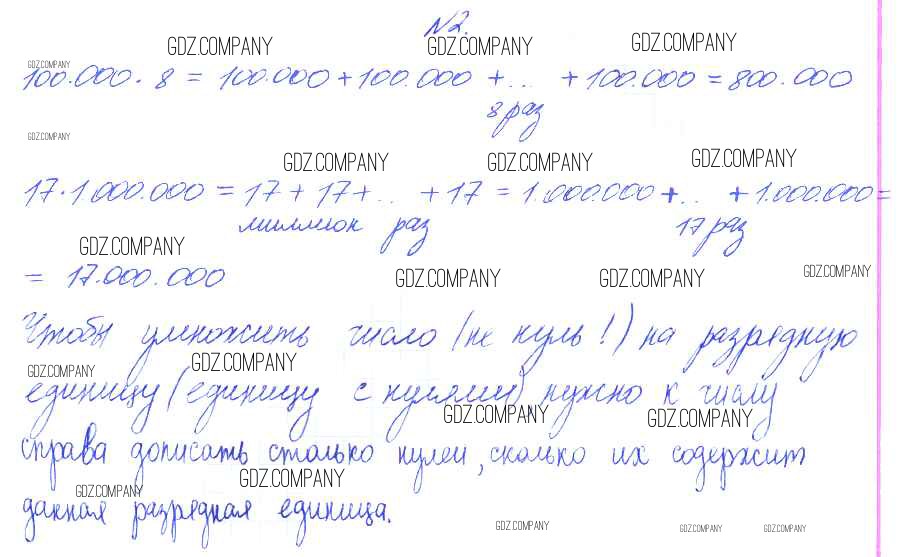 N2.
GDZ.COMPANY GDZ.COMPANY GDZ.COMPANY
GDZ.COMPANY
100.000 · 8 = 100.000 + 100.000 + ... + 100.000 = 800.000
8 раз
GDZ.COMPANY
GDZ.COMPANY GDZ.COMPANY GDZ.COMPANY
17 · 1.000.000 = 17 + 17 + ... + 17 = 1.000.000 + ... + 1.000.000 =
миллион раз 17 раз
GDZ.COMPANY
= 17.000.000
GDZ.COMPANY GDZ.COMPANY GDZ.COMPANY
Чтобы умножить число (не нуль!) на разрядную
GDZ.COMPANY GDZ.COMPANY
единицу (единицу с нулями) нужно к числу
GDZ.COMPANY GDZ.COMPANY
справа дописать столько нулей, сколько их содержит
GDZ.COMPANY GDZ.COMPANY
данная разрядная единица.
GDZ.COMPANY GDZ.COMPANY GDZ.COMPANY